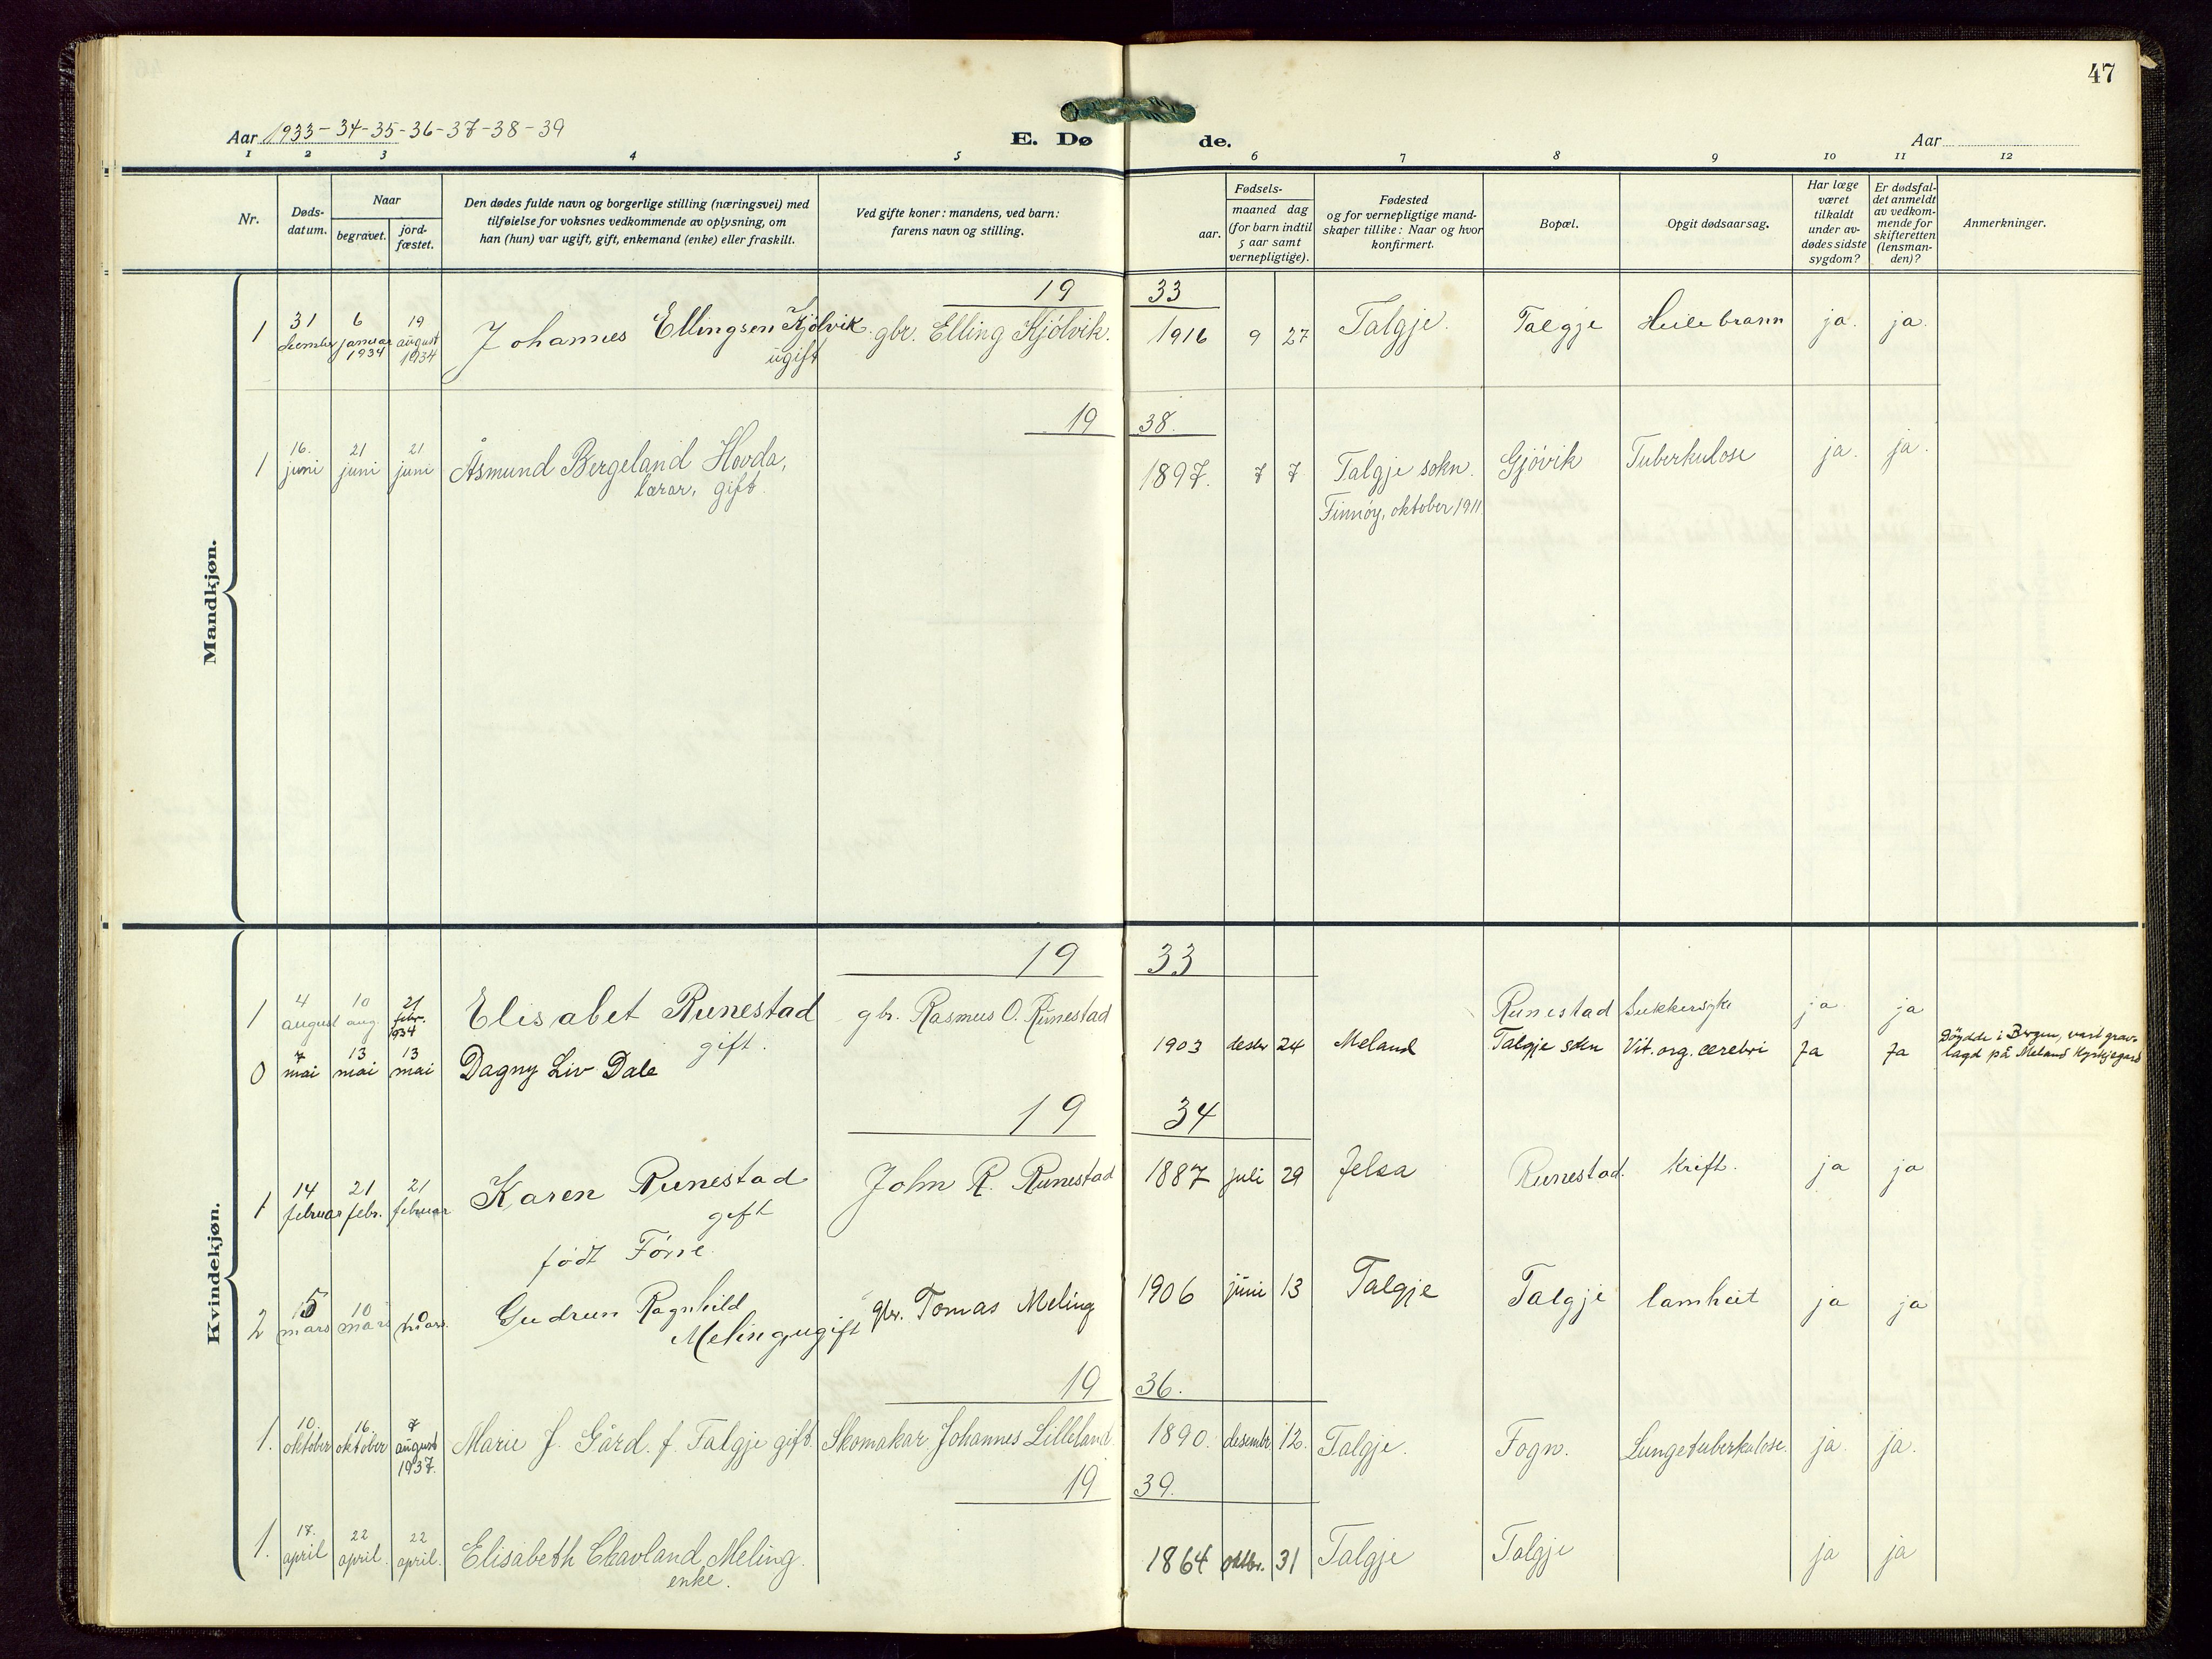 47
Aar 1933-34-35-36-37-38-39
E. Dø de.
Aar
1 2 3 4 5 6 7 8 9 10 11 12
Nr.
Døds-
datum.
Naar
begravet.
jord-
fæstet.
Den dødes fulde navn og borgerlige stilling (næringsvei) med
tilføielse for voksnes vedkommende av oplysning, om
han (hun) var ugift, gift, enkemand (enke) eller fraskilt.
Ved gifte koner: mandens, ved barn:
farens navn og stilling.
Fødsels-
aar.
maaned dag
(for barn indtil
5 aar samt
vernepligtige).
Fødested
og for vernepligtige mand-
skaper tillike: Naar og hvor
konfirmert.
Bopæl.
Opgit dødsaarsag.
Har læge
været
tilkaldt
under av-
dødes sidste
sygdom?
Er dødsfal-
det anmeldt
av vedkom-
mende for
skifteretten
(lensman-
den)?
Anmerkninger.
Mandkjøn.
19 33
1 31 desember 6 januar 1934 19 august 1934 Johannes Ellingsen Kjølvik gbr. Elling Kjølvik. 1916 9 27 Talgje. Talgje ja. ja.
ugift
19 38.
1 16. juni 21 juni 21 juni Åsmund Bergeland Hovda, 1897. 7 7 Talgje sokn. Gjövik Tuberkulose ja. ja.
lærar, gift.
Finnöy, oktober 1911
Kvindekjøn.
19 33
1 4 august 10 aug. 21 febr. 1934 Elisabet Runestad gbr. Rasmus O. Runestad Runestad Sukkersyke ja ja
gift.
0 7 mai 13 mai 13 mai Dagny Liv Dale 1903 desbr 24 Meland Talgje sokn Vit. org. cerebri Ja Ja Döydde i Bergen, vart grav-
lagd på Meland kyrkjegard
19 34
1 14 februar 21 febr. 21 februar Karen Runestad John R. Runestad 1887 juli 29 Jelsa Runestad. Kreft. ja ja
gift
født Førre.
2 5 mars 10 mars mars. Gudrun Ragnhild gbr. Tomas Meling 1906 juni 13 Talgje Talgje lamheit ja ja
Meling ugift
19 36.
1. 10. oktober 16. oktober 7 august 1937. Marie J. Gård. f. Talgje gift. Skomakar Johannes Lilleland. 1890. desembr 12. Talgje. Fogn. Lungetuberkulose. ja. ja.
19 39.
1. 17. april 22 april. 22 april. Elisabeth Meling. 1864 oktbr. 31 Talgje Talgje ja ja
enke.